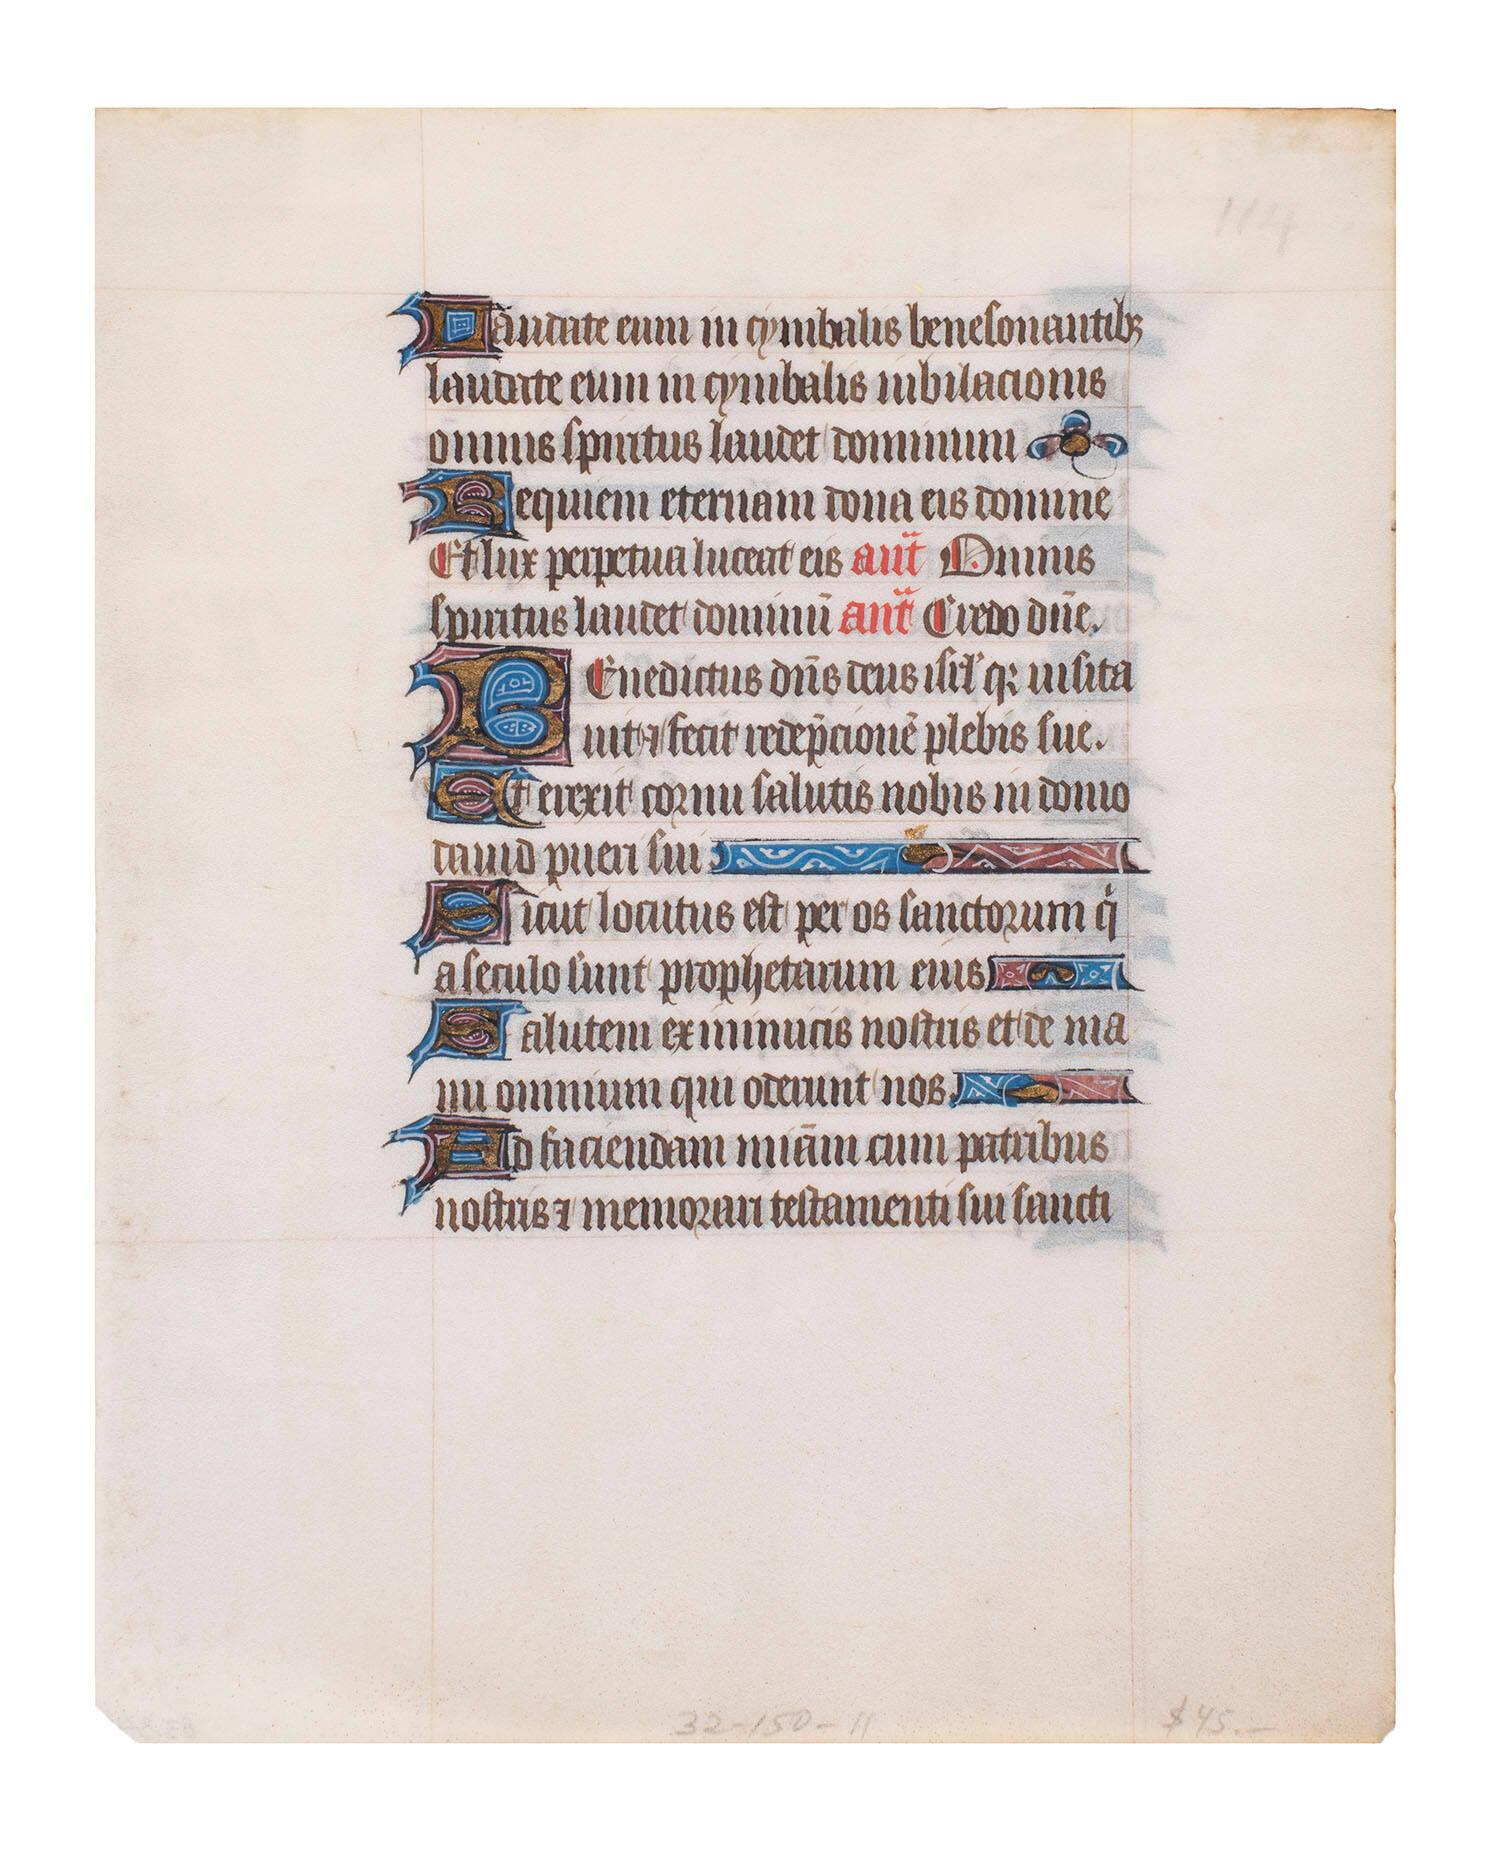 114
Laudate eum in cymbalis benesonantibꝫ
laudate eum in cymbalis iubilacionis
omnis spiritus laudet dominum
Requiem eternam dona eis domine
Et lux perpetua luceat eis ant̄ Omnis
spiritus laudet dominū ant̄ Credo dn̄e.
BEnedictus dn̄s deus isrl' qꝛ uisita
uit ⁊ fecit redēpcionē plebis sue.
Et erexit cornu salutis nobis in domo
dauid pueri sui
Sicut locutus est per os sanctorum qͥ
a seculo sunt prophetarum eius
Salutem ex inimicis nostris et de ma
nu omnium qui oderunt nos.
Ad faciendam miām cum patribus
nostris ⁊ memorari testamenti sui sancti
32-150-11 $45.–